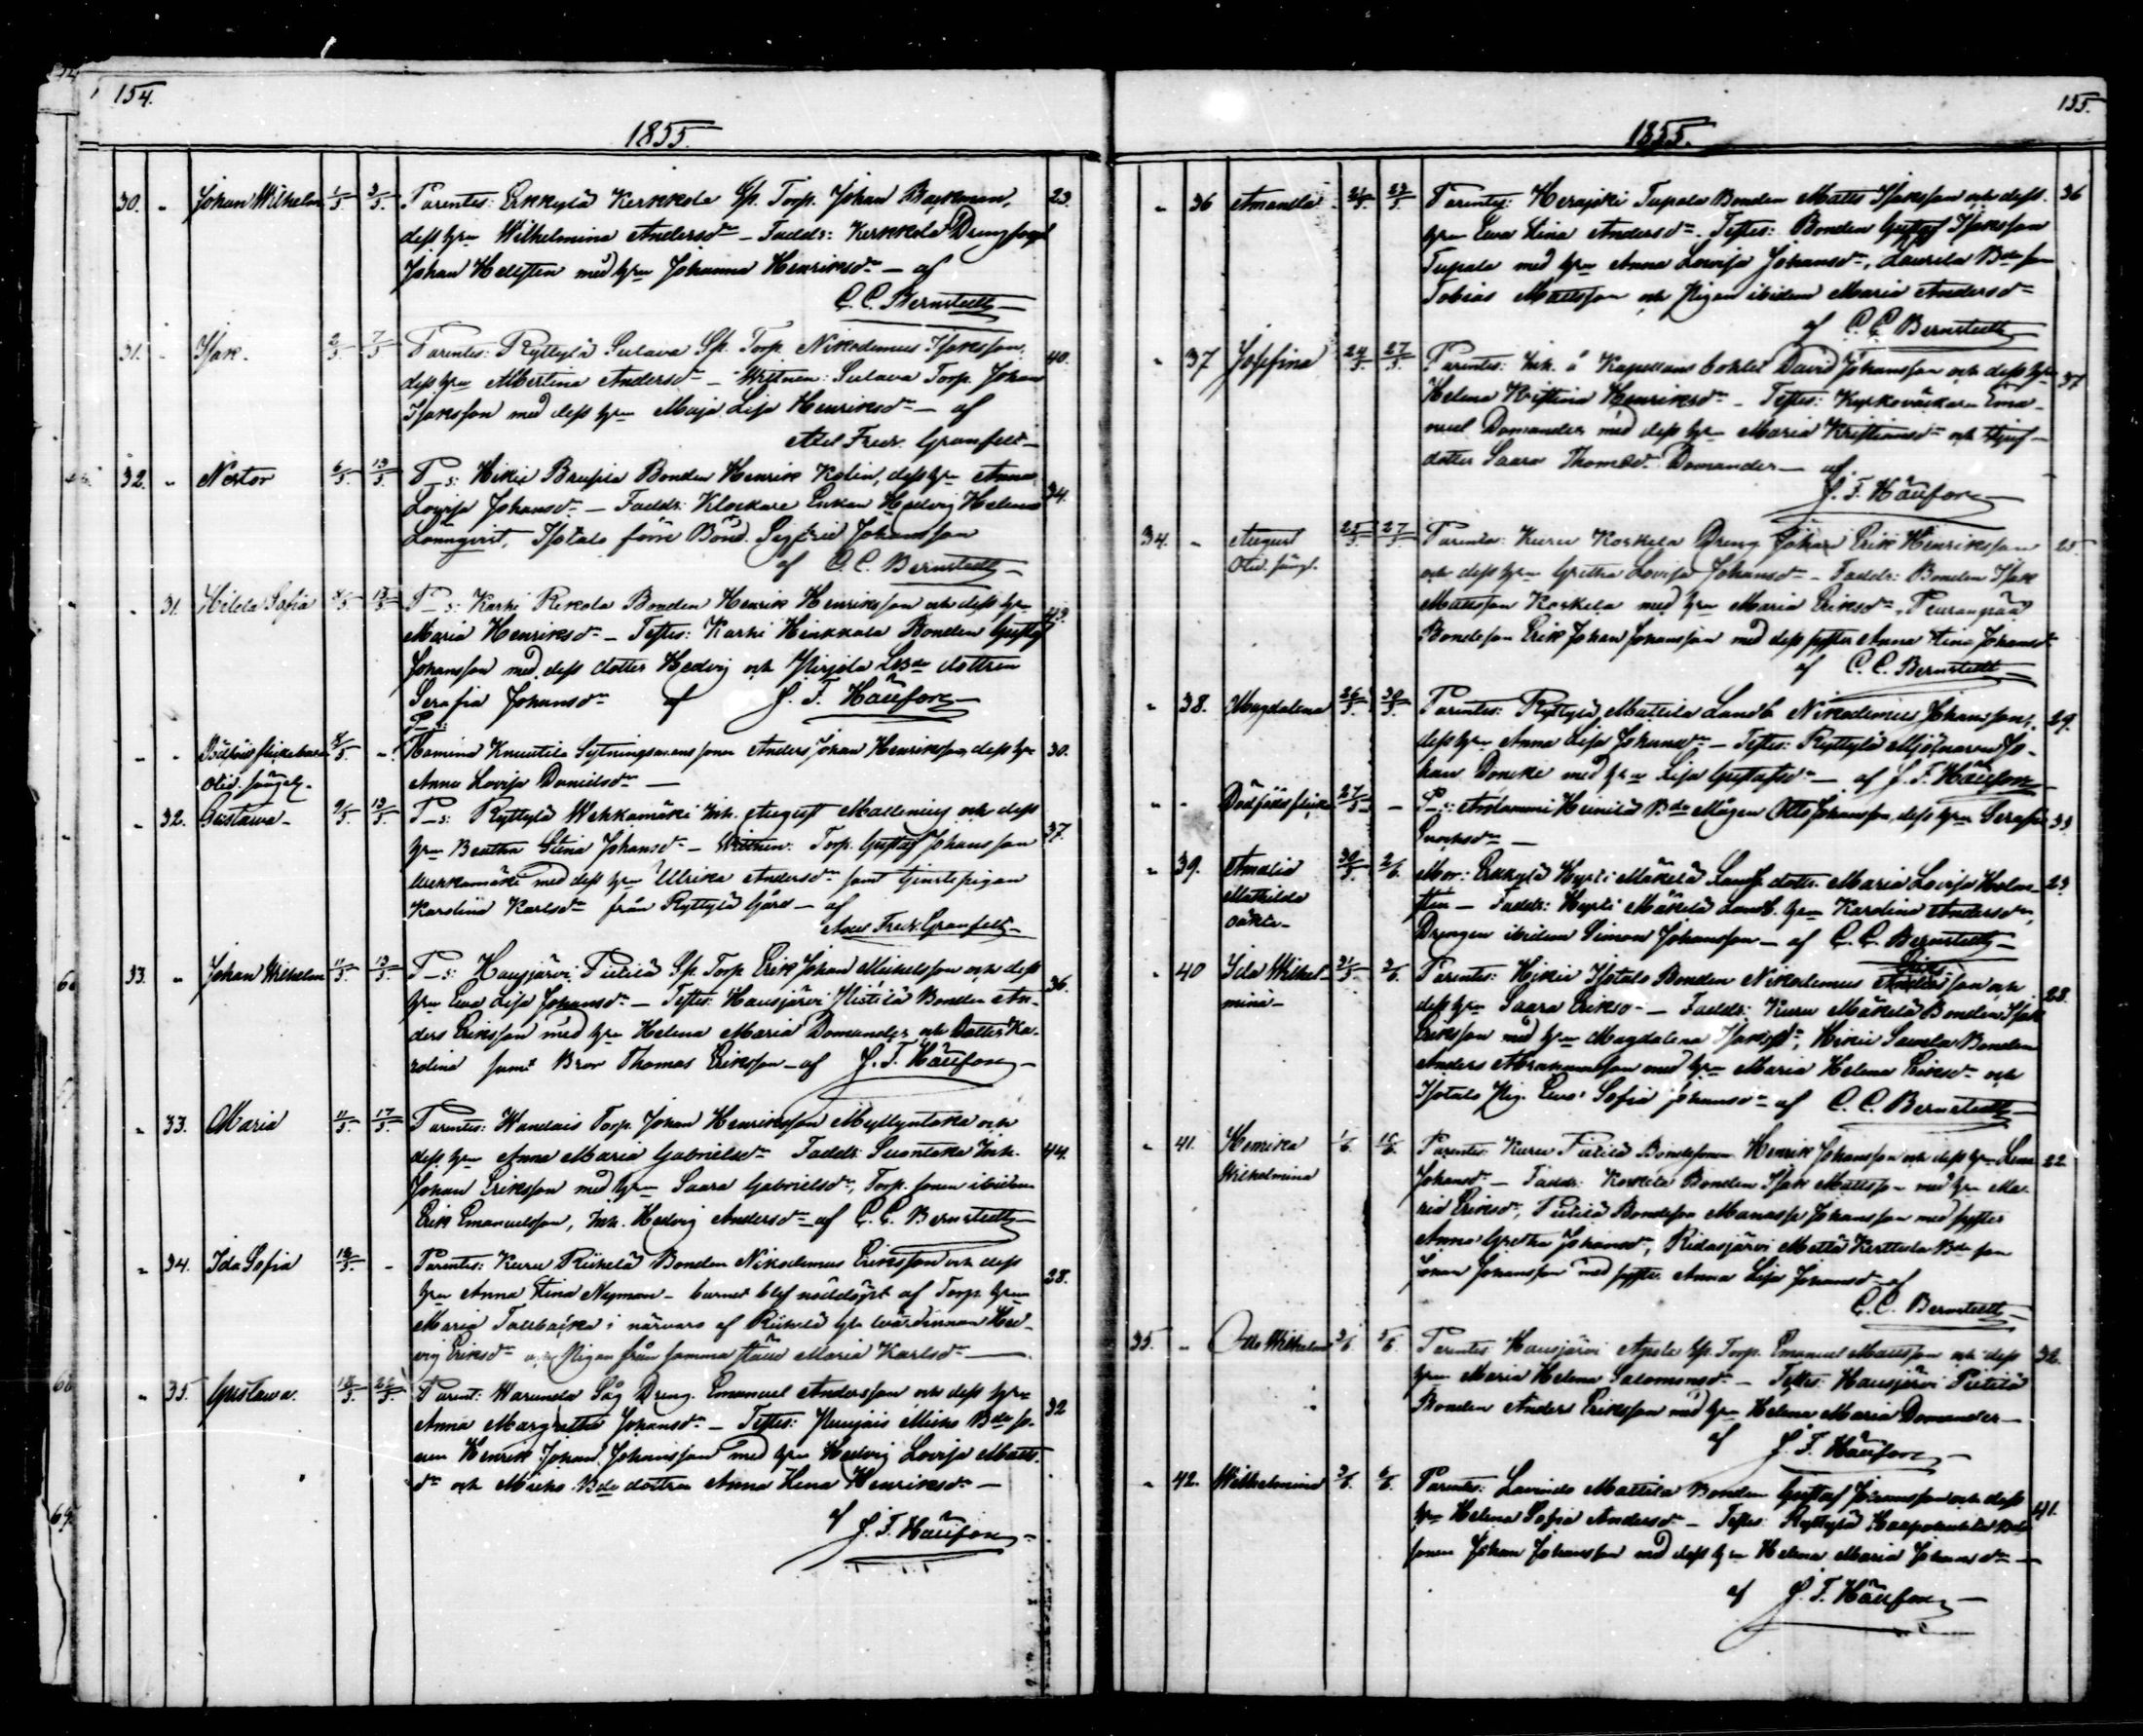 154.
1855.
30. " Johan Wilhelm 1/5 3/5 Parentes: Erkkylä Kerkkola Sp. Torp. Johan Backman, 23.
dess hu Wilhelmina Andersdr — Faddr: Kerkkola Dreng
Johan Hellsten med hu Johanna Henriksdr — af
C. C. Bernstedt
31. " Isak. 2/5 7/5 Parentes: Ryttylä Sulava Sp. Torp. Nikodemus Isaksson, 40.
dess hu Albertina Andersdr — Wittnen: Sulava Torp. Johan
Isaksson med dess hu Maja Lisa Henriksdr — af
Axel Fredr. Granfelt
32. " Nestor 6/5 13/5 P_s: Hikiä Bonden Henrik Kolin, dess hu Anna 34.
Lovisa Johansdr — Faddr: Klockare Enkan Hedvig Helena
Lönnqvist, Isotalo förre Bond. Sigfrid Johansson
af C. C. Bernstedt
" 31. Hilda Sofia 8/5 13/5 P_s: Karhi Rekola Bonden Henrik Henriksson och dess hu
Maria Henriksdr — Testes: Karhi Heikkala Bonden Gustaf
Johansson med dess dotter Hedvig och dottren
Serafia Johansdr af J. F. Häufor
P_s:
" " Dödfödt flickebarn 8/5 " Hamina Knuutila Sytningsmans sonen Anders Johan Henriksson, dess hu 30.
Anna Lovisa Danielsdr —
" 32. Gustawa 9/5 13/5 P_s: Ryttylä Wehkamäki Inh. August Mallenius och dess 37.
hu Beatha Stina Johansdr — Wittnen: Torp. Gustaf Johansson
Wehkamäki med dess hu Ulrika Andersdr samt pigan
Karolina Karlsdr från Ryttylä Gård — af
Axel Fredr. Granfelt
33. " Johan Wilhelm 11/5 13/5 P_s: Hausjärvi Pietilä Sp. Torp. Erik Johan Mickelsson och dess 36.
hu Ewa Lisa Johansdr — Testes: Hausjärvi Pietilä Bonden An-
ders Eriksson med hu Helena Maria Domander och Dotter Ka-
rolina samt Bror Thomas Eriksson — af J. F. Häufor
" 33. Maria 11/5 17/5 Parentes: Torp. Johan Henriksson Myllyntaka och 44.
dess hu Anna Maria Gabrielsdr Faddr: Suontaka Inh.
Johan Eriksson med hu Saara Gabrielsdr, Torp. sonen ibidem
Erik Emanuelsson, Inh. Hedvig Andersdr — af C. C. Bernstedt
" 34. Ida Sofia " Parentes: Kuru Riihelä Bonden Nikodemus Eriksson och dess 28.
hu Anna Stina Nyman — barnet blef nöddöpt af Torp. hu
Maria Tallbacka i närvaro af Riihelä värdinnan Hed-
vig Eriksdr Pigan från samma ställe Maria Karlsdr —
" 35. Gustawa. 18/5 Parent: Warunda Såg Dreng. Emanuel Andersson och dess hu 32
Anna Margretha Johansdr — Testes: Bde so-
nen Henrik Johan Johansson med hu Hedvig Lovisa Matts-
dr och Bde dottren Anna Lena Henriksdr —
af J. F. Häufor
155.
1855.
" 36 Amanda 21/5 23/5 Parentes: Tupala Bonden Matts Isaksson och dess 36
hu Ewa Lina Andersdr. Testes: Bonden Gustaf Isaksson
Tupala med hu Anna Lovisa Johansdr, Laurila Bde son
Tobias Mattsson och Pigan ibidem Maria Andersdr
af C. C. Bernstedt
" 37 Josefina 24/5 27/5 Parentes: Inh. å Kapellans bohlet David Johansson och dess hu 37
Helena Kristina Henriksdr — Testes: Kyrkoväktaren Ema-
nuel Domander med dess hu Maria Kristiansdr och
dotter Saara Thomasdr Domander — af
J. F. Häufor
34. " August 25/5 27/5 Parentes: Kuru Koskela Dreng Johan Erik Henriksson 25
Oäd. fångl. och dess hu Gretha Lovisa Johansdr — Faddr: Bonden Isak
Mattsson Koskela med hu Maria Eriksdr,
Bondeson Erik Johan Johansson med dess syster Anna Stina Johansdr
af C. C. Bernstedt
" 38. Magdalena 26/5 30/5 Parentes: Ryttylä Mattila Landb. Nikodemus Johansson, 29.
dess hu Anna Lisa Johansdr — Testes: Ryttylä Mjölnaren Jo-
han Doncke med hu Lisa Gustafsdr — af J. F. Häufor
" " Dödfödt flicka 27/5 — P_s: Arolammi Heinilä Bde Mågen Otto Johansson, dess hu Serafia 33
" 39. Amalia 30/5 2/6 Mor: Erkkylä Hyrti Mäkelä Landb. dottr. Maria Lovisa Holm- 23
Mathilda sten — Faddr: Hyrti Mäkelä Landb. hu Karolina Andersdr,
oäkta — Drengen ibidem Simon Johansson — af C. C. Bernstedt
" 40 Ida Wilhel- 31/5 3/6 Parentes: Hikiä Isotalo Bonden Nikodemus Eriksson och 28.
mina — dess hu Saara Eriksdr — Faddr: Kuru Mäkelä Bonden Isak
Eriksson med hu Magdalena Isaksdr, Hikiä Bonden
Anders Abrahamsson med hu Maria Helena Eriksdr och
Isotalo Pig. Ewa Sofia Johansdr af C. C. Bernstedt
" 41. Henrika 1/6 10/6 Parentes: Kuru Pietilä Bondesonen Henrik Johansson och dess hu Lena 22
Wilhelmina Johansdr — Faddr: Koskela Bonden Isak Mattsson med hu Ma-
ria Eriksdr, Pietilä Bondeson Manasse Johansson med syster
Anna Gretha Johansdr, Ridasjärvi Metlä Kerttula Bde son
Johan Johansson med syster Anna Lisa Johansdr — af
C. C. Bernstedt
35. " Otto Wilhelm 3/6 5/6 Parentes: Hausjärvi Sp. Torp. Emanuel Mattsson och dess 32.
hu Maria Helena Salomonsdr — Testes: Hausjärvi Pietilä
Bonden Anders Eriksson med hu Helena Maria Domander —
af J. F. Häufor
" 42. Wilhelmina 3/6 6/6 Parentes: Lavinto Mattila Bonden Gustaf Johansson och dess 41.
hu Helena Sofia Andersdr — Testes: Ryttylä Bde
sonen Johan Johansson med dess hu Helena Maria Johansdr —
af J. F. Häufor